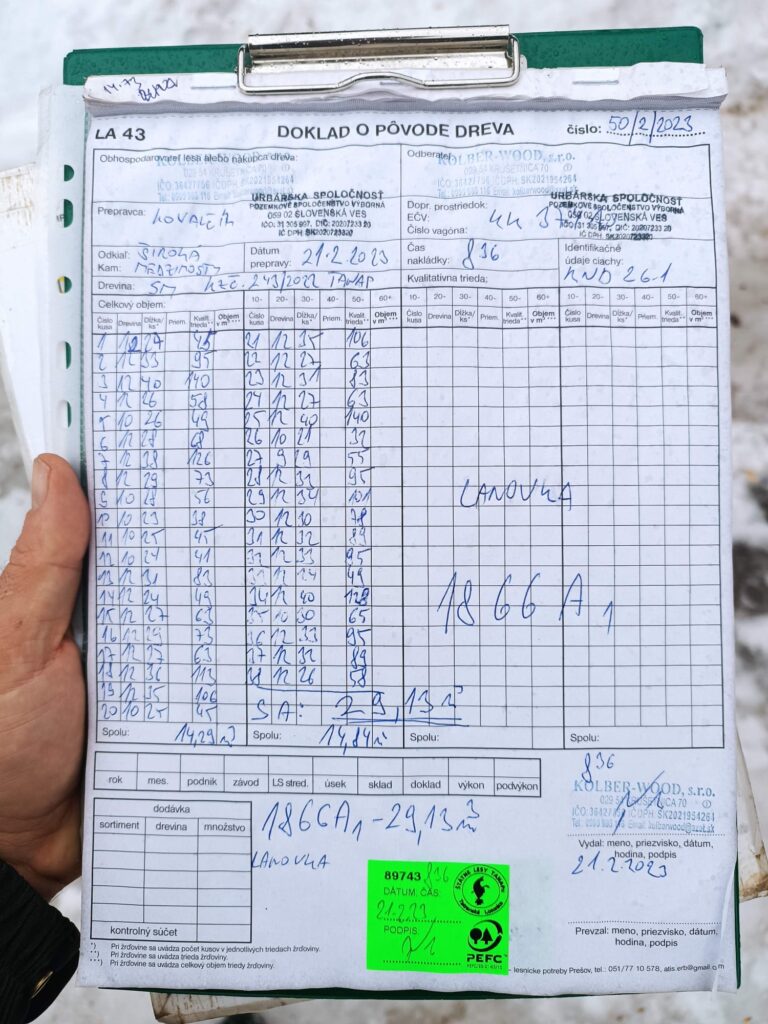 LA 43 DOKLAD O PÔVODE DREVA číslo: 50/2/2023
Obhospodarovateľ lesa alebo nákupca dreva:
KOLBER-WOOD, s.r.o.
029 54 KRUŠETNICA 70
URBÁRSKA SPOLOČNOSŤ
POZEMKOVÉ SPOLOČENSTVO VÝBORNÁ
059 02 SLOVENSKÁ VES
IČO: 31 305 997, DIČ: 2020723320
IČ DPH: SK2020723320
Odberateľ:
KOLBER-WOOD, s.r.o.
029 54 KRUŠETNICA 70
URBÁRSKA SPOLOČNOSŤ
POZEMKOVÉ SPOLOČENSTVO VÝBORNÁ
059 02 SLOVENSKÁ VES
Prepravca: KOVALČÍK
Dopr. prostriedok:
EČV: KK
Číslo vagóna:
Odkiaľ: ŠIROKÁ
Kam: MEDZIMOSTY
Dátum prepravy: 21.2.2023
Čas nakládky: 836
Identifikačné údaje ciachy: KND 261
Drevina: SM KZČ. 243/2022 TANAP
Kvalitatívna trieda:
Celkový objem: 10- 20- 30- 40- 50- 60+ 10- 20- 30- 40- 50- 60+
Číslo kusa Drevina Dĺžka/ks* Priem. Kvalit. trieda** Objem v m³*** Číslo kusa Drevina Dĺžka/ks* Priem. Kvalit. trieda** Objem v m³*** Číslo kusa Drevina Dĺžka/ks* Priem. Kvalit. trieda** Objem v m³*** Číslo kusa Drevina Dĺžka/ks* Priem. Kvalit. trieda** Objem v m³***
1 12 27 21 12 35 106
2 12 33 95 22 12 27 63
3 12 40 140 23 12 31 83
4 12 26 58 24 12 27 63
5 10 26 49 25 12 40 140
6 12 28 68 26 10 21 32
7 12 38 126 27 9 29 55
8 12 29 73 28 12 33 95
9 10 28 56 29 12 34 101
10 10 23 38 30 12 30 78
11 10 25 45 31 12 32 89
12 10 24 41 32 12 33 95
13 12 31 83 33 12 24 49
14 12 24 49 34 12 40 128
15 12 27 63 35 10 30 65
16 12 29 73 36 12 33 95
17 12 27 63 37 12 32 89
18 12 36 113 38 12 26 58
19 12 35 106
20 10 25 45 SA: 29,13 m³
LANOVKA
1866 A1
Spolu: 14,29 m³ Spolu: 14,84 m³ Spolu: Spolu:
rok mes. podnik závod LS stred. úsek sklad doklad výkon podvýkon
dodávka
sortiment drevina množstvo
kontrolný súčet
1866A1 - 29,13 m³
LANOVKA
836
KOLBER-WOOD, s.r.o.
029 54 KRUŠETNICA 70
Vydal: meno, priezvisko, dátum,
hodina, podpis
21.2.2023
89743 836
DÁTUM, ČAS:
21.2.23
PODPIS
ŠTÁTNE LESY TANAPu
PEFC
Prevzal: meno, priezvisko, dátum,
hodina, podpis
*) Pri žrďovine sa uvádza počet kusov v jednotlivých triedach žrďoviny.
**) Pri žrďovine sa uvádza trieda žrďoviny.
***) Pri žrďovine sa uvádza celkový objem triedy žrďoviny.
- lesnícke potreby Prešov, tel.: 051/77 10 578, atis.erb@gmail.com